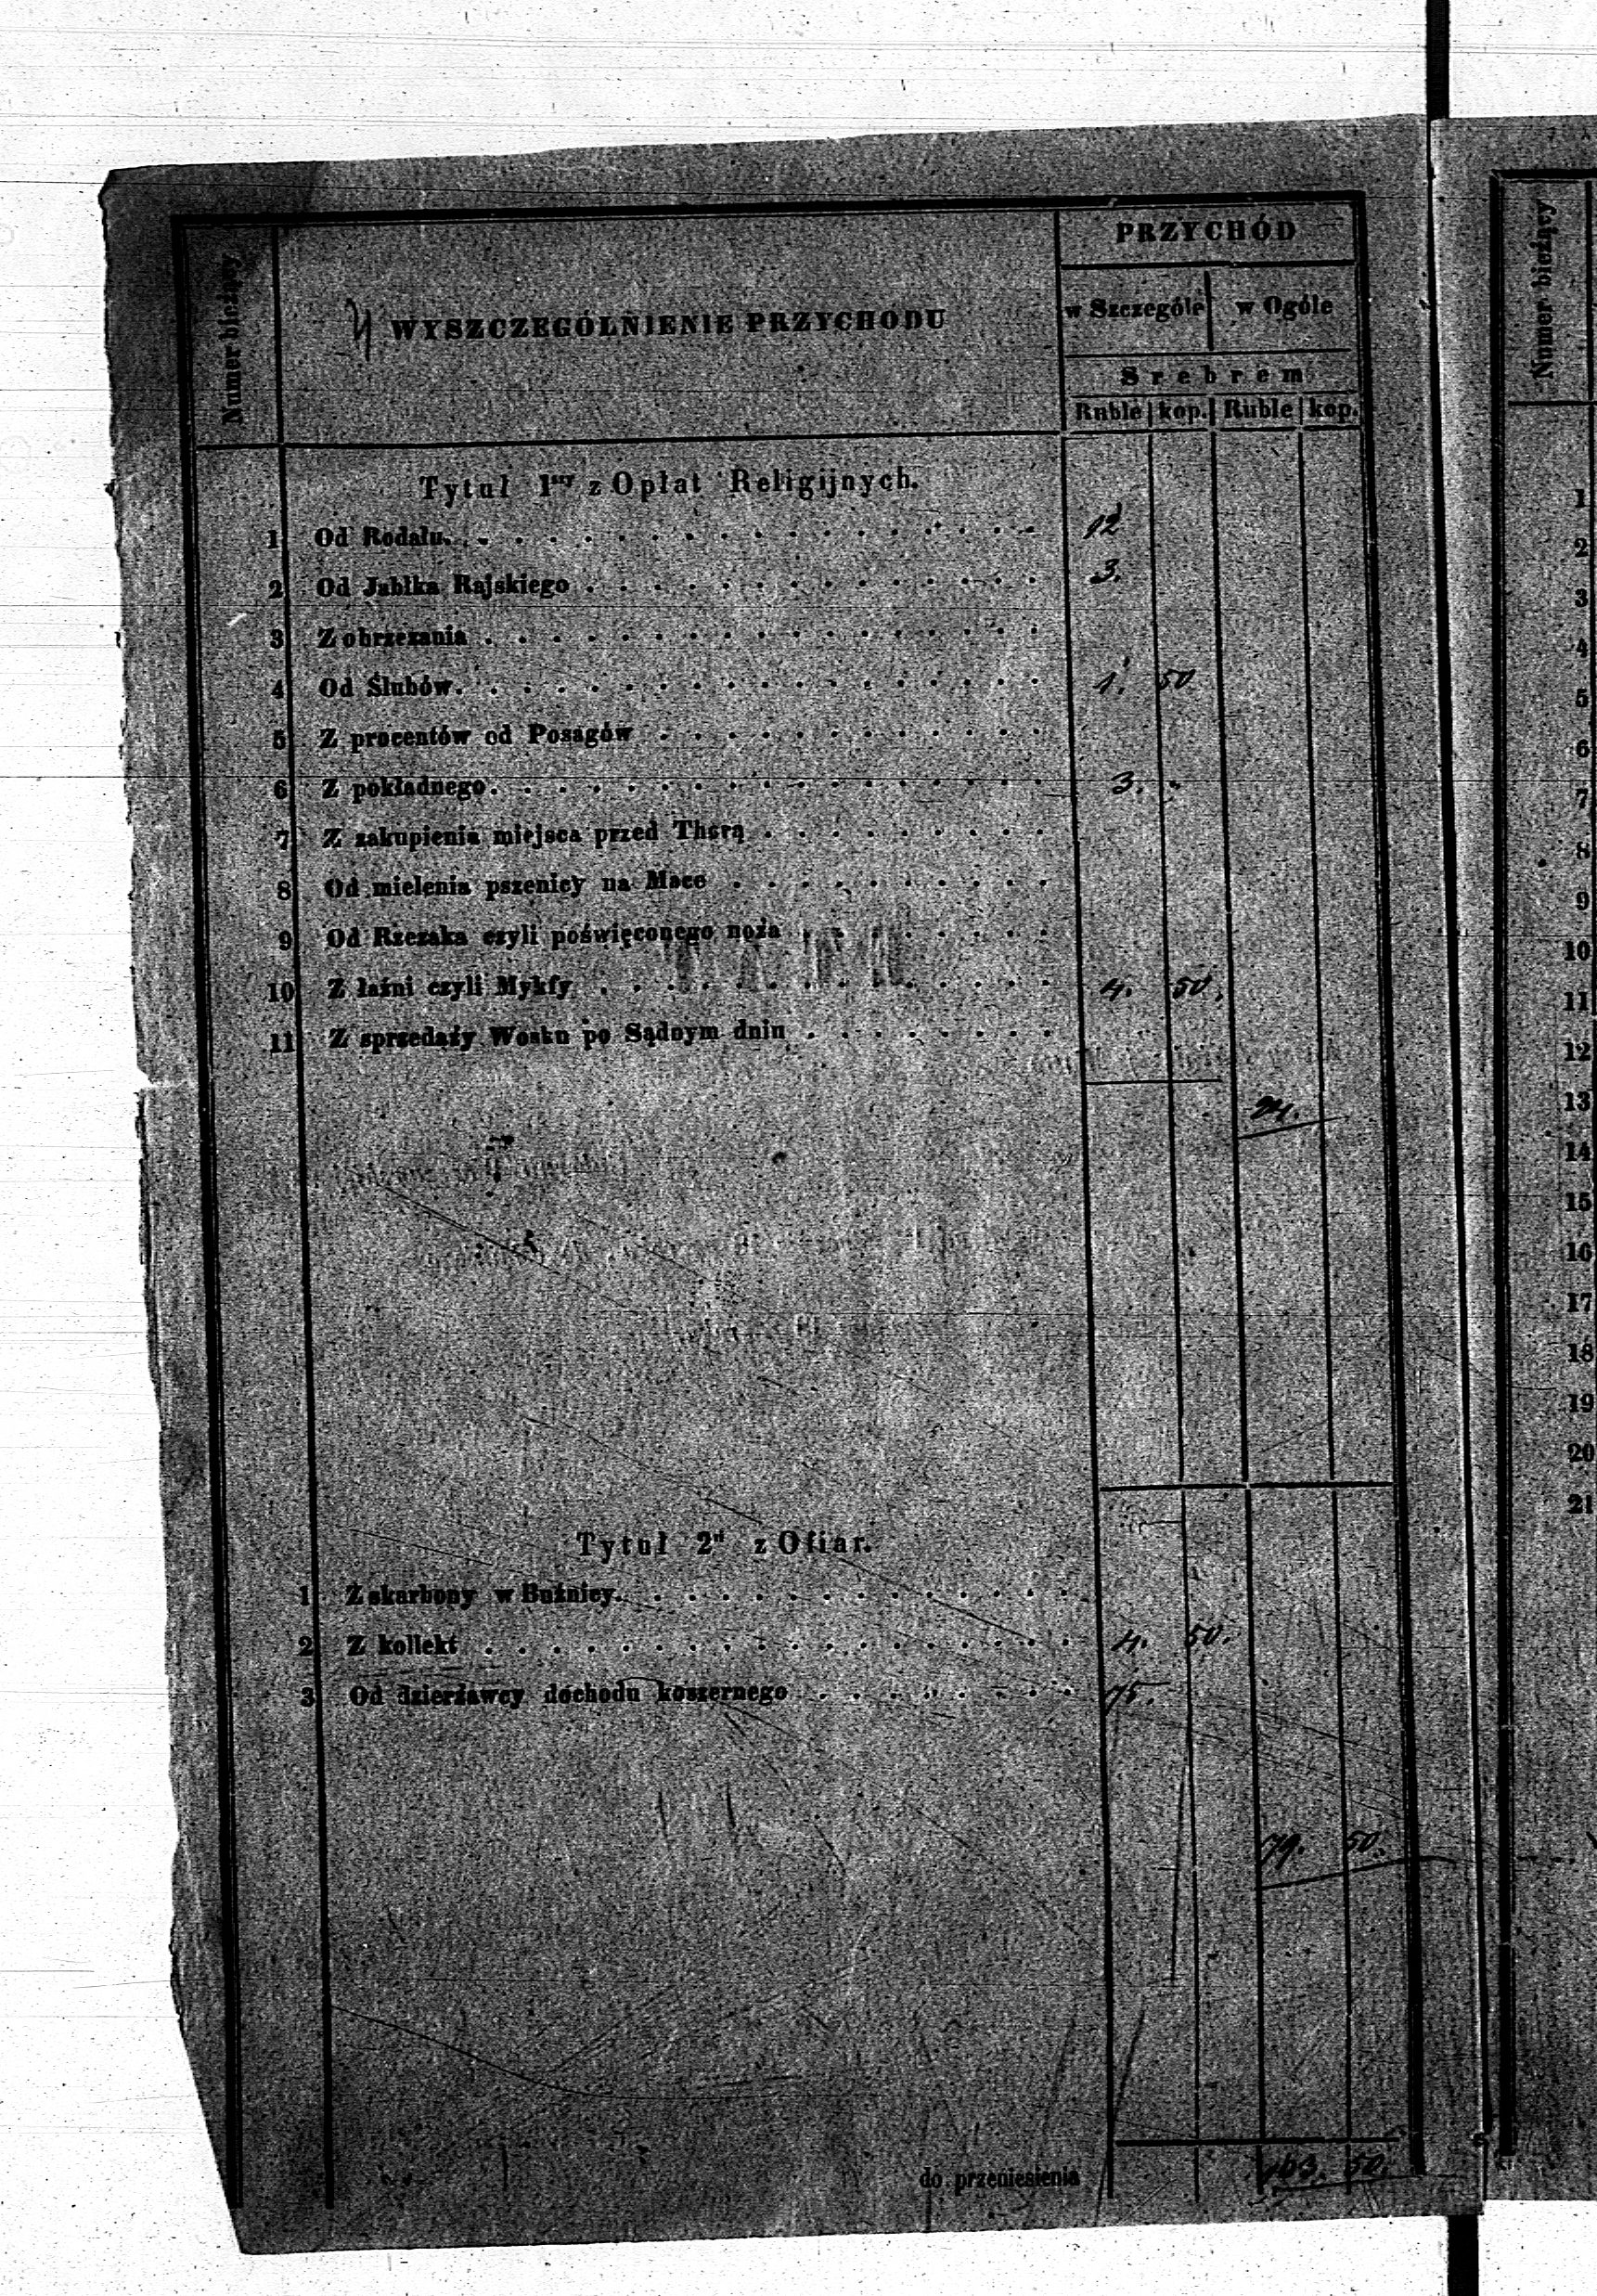 PRZYCHÓD
Numer bieżący
WYSZCZEGÓLNIENIE PRZYCHODU
w Szczególe w Ogóle
Srebrem
Ruble kop. Ruble kop.
Tytuł 1szy z Opłat Religijnych.
1 Od Rodału. 12
2 Od Jabłka Rajskiego 3.
3 Z obrzezania
4 Od Ślubów. 1. 50
5 Z procentów od Posagów
6 Z pokładnego. 3. -
7 Z zakupienia miejsca przed Thorą
8 Od mielenia pszenicy na Mace
9 Od Rzezaka czyli poświęconego noża
10 Z łaźni czyli Mykfy 4. 50.
11 Z sprzedaży Wosku po Sądnym dniu
24.
Tytuł 2gi z Ofiar.
1 Z skarbony w Bużnicy.
2 Z kollekt 4. 50.
3 Od dzierżawcy dochodu koszernego 75.
79. 50.
do przeniesienia 103. 50.
Numer bieżący
1
2
3
4
5
6
7
8
9
10
11
12
13
14
15
16
17
18
19
20
21